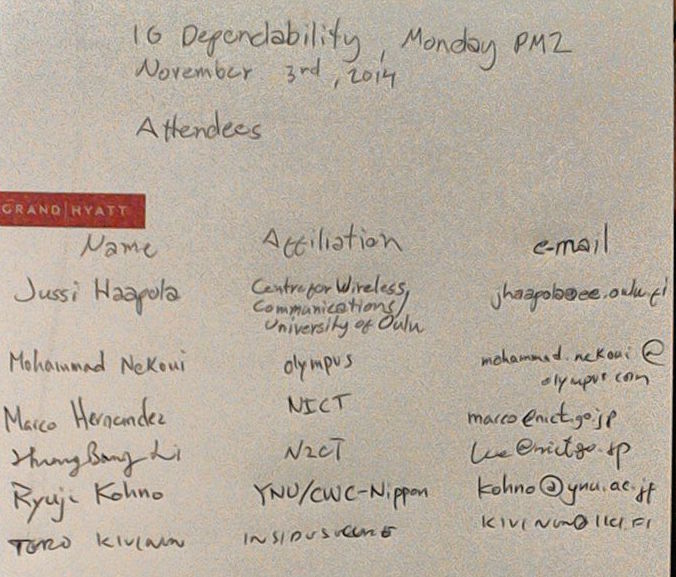 IG Dependability, Monday PM2
November 3rd, 2014
Attendees
GRAND HYATT
Name Affiliation e-mail
Jussi Haapola Centre for Wireless, jhaapola@ee.oulu.fi
Communications/
University of Oulu
Mohammad Nekoui olympus mohammad.nekoui@
olympus.com
Marco Hernandez NICT marco@nict.go.jp
Li NICT @nict.go.jp
Ryuji Kohno YNU/CWC-Nippon kohno@ynu.ac.jp
KIVINEN